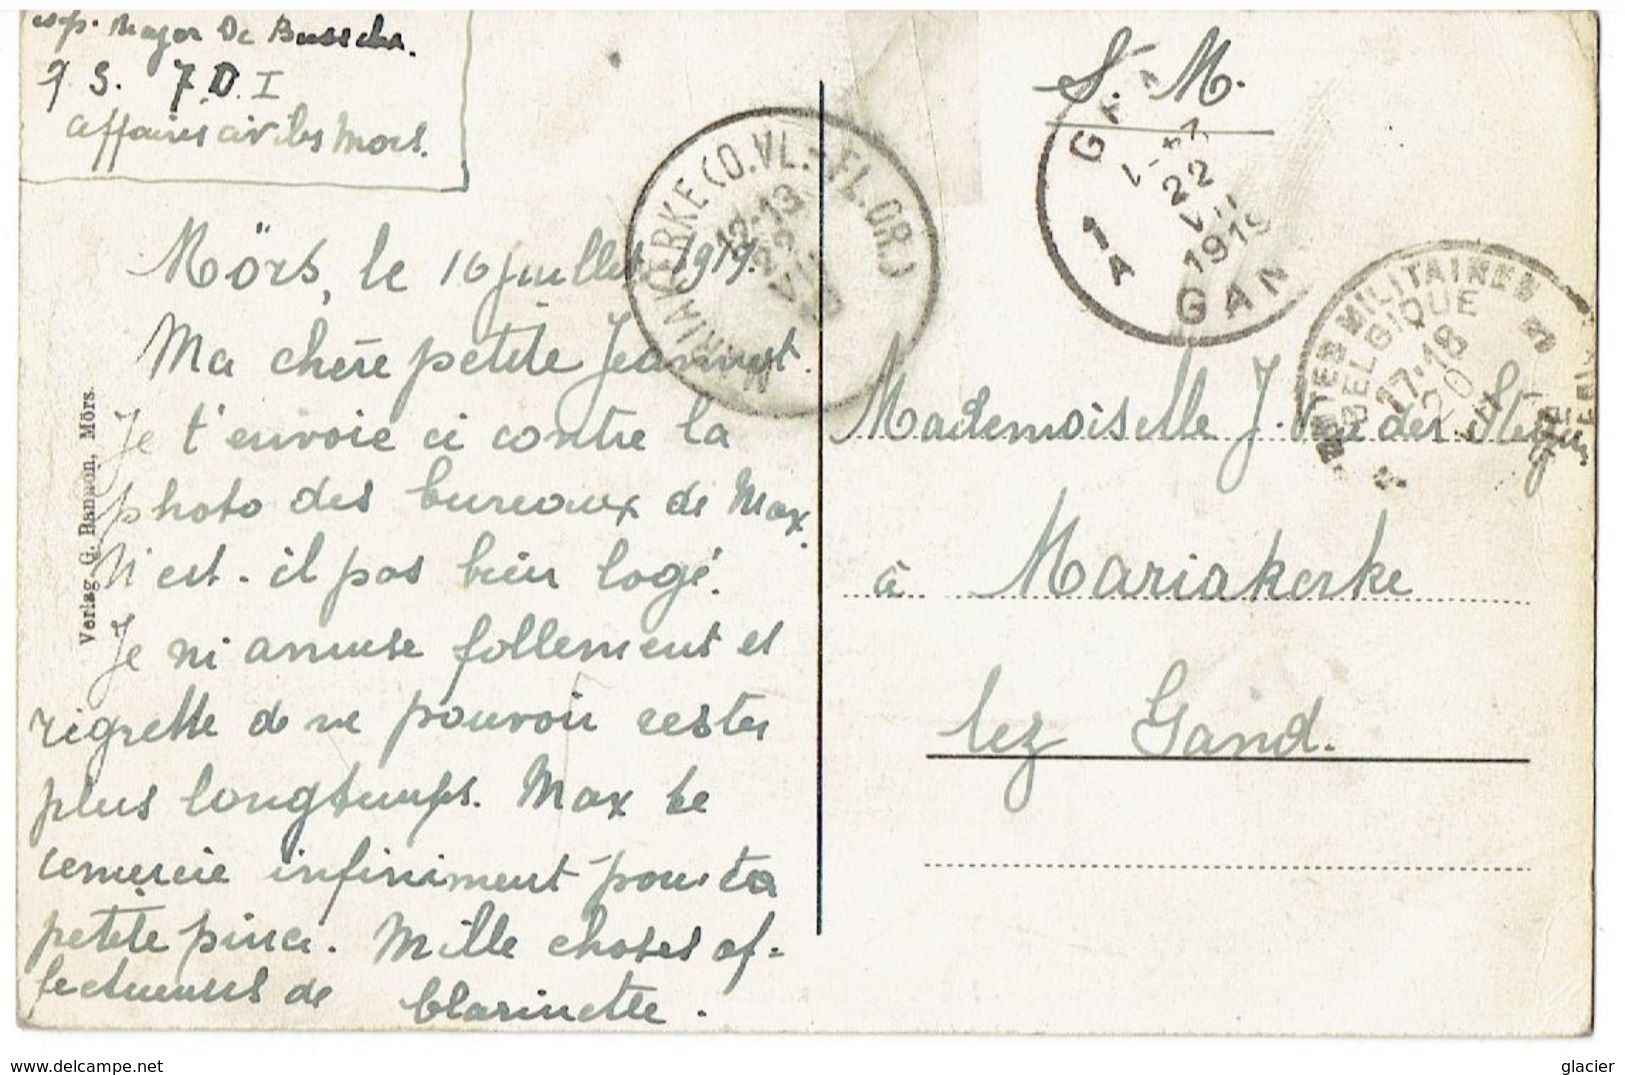 exp. Major De Busscher.
Q. G. 7. D. I
affaires civiles Mörs.
S. M.
Mörs, le 16 juillet 1919.
Ma chère petite Jeannot.
Je t'envoie ci contre la
photo des bureaux de Max.
N'est-il pas bien logé.
Je m'amuse follement et
rigrette de ne pouvoir rester
plus longtemps. Max te
remercie infiniment pour ta
petite pince. Mille choses af-
fectueuses de Clarinette.
Verlag G. Bannon, Mörs.
Mademoiselle J. der
à Mariakerke
lez Gand.
MARIAKERKE (O.VL.-FL.OR.)
12-13
22
VII
GENT
22
VII
1919
1 A
GAN
POSTES MILITAIRES
BELGIQUE
17-18
20
VII
glacier